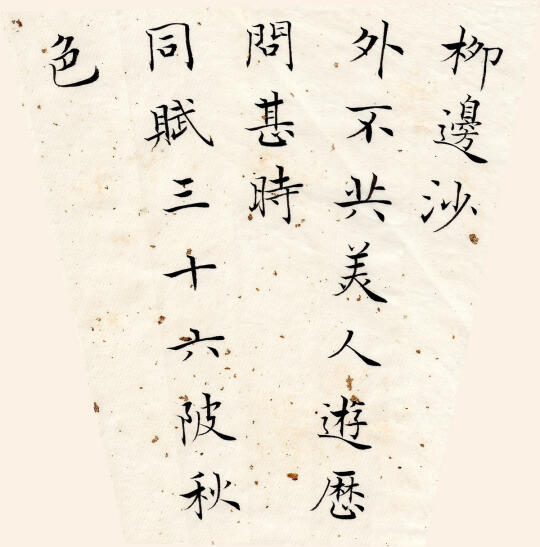 柳邊沙
外不共美人遊歷
問甚時
同賦三十六陂秋
色